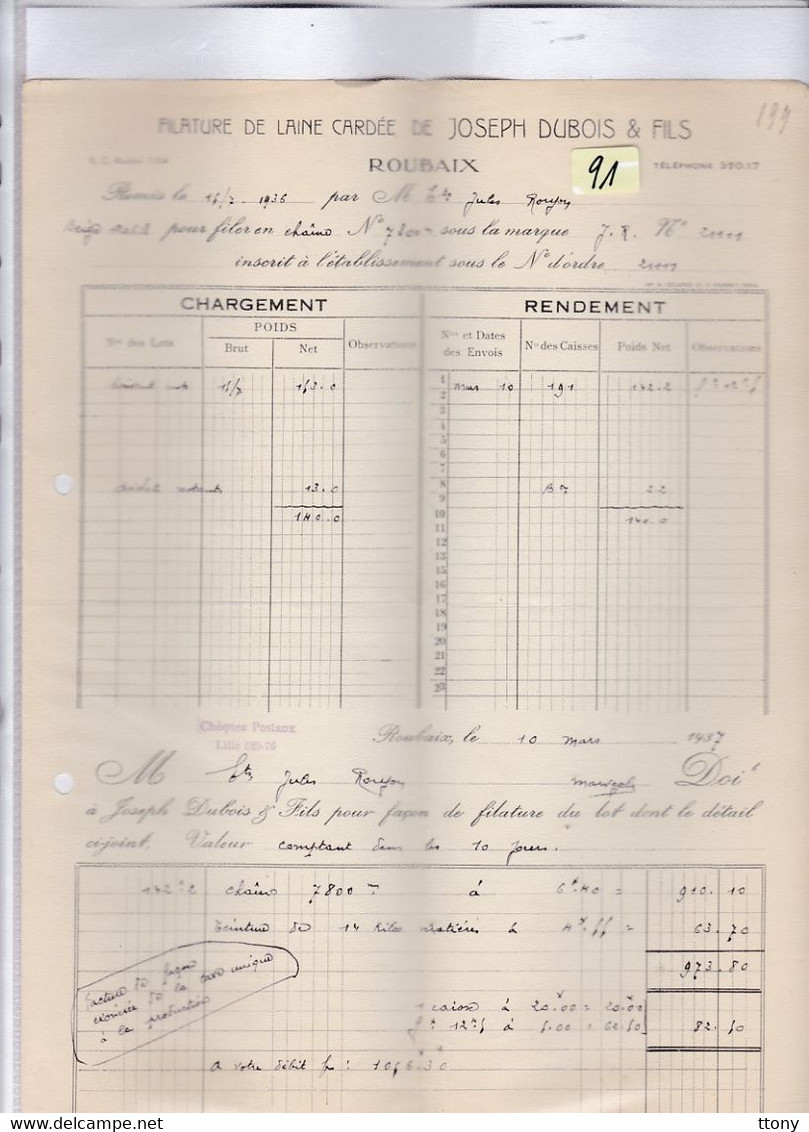 199
FILATURE DE LAINE CARDÉE DE JOSEPH DUBOIS & FILS
ROUBAIX
91
TÉLÉPHONE 350.17
Remis le 15/7 1936 par M Ets Jules
pour filer en chaîne No 7800 sous la marque J. R. No
inscrit à l'établissement sous le No d'ordre
CHARGEMENT RENDEMENT
POIDS
Nos des Lots Brut Net Observations Nos et Dates des Envois Nos des Caisses Poids Net Observations
153.0
1 Mars 10 191 142.2
2
3
4
5
6
7
13.0
8 2.2
9
10
140.0 140.0
11
12
13
14
15
16
17
18
19
20
21
22
23
Chèques Postaux
Lille
Roubaix, le 10 mars 1937
M Ets Jules Doit
à Joseph Dubois & Fils pour façon de filature du lot dont le détail
ci-joint. Valeur comptant dans les 10 jours.
142.2 chaîne 7800 à 6.40 = 910.10
teinture de 14 Kilos à 4.55 = 63.70
973.80
facture de façon
exonérée de la taxe unique
à la production
1 caisse à 20.00 = 20.00
à 5.00 = 62.50 82.50
a votre débit fr: 1056.30
ttony